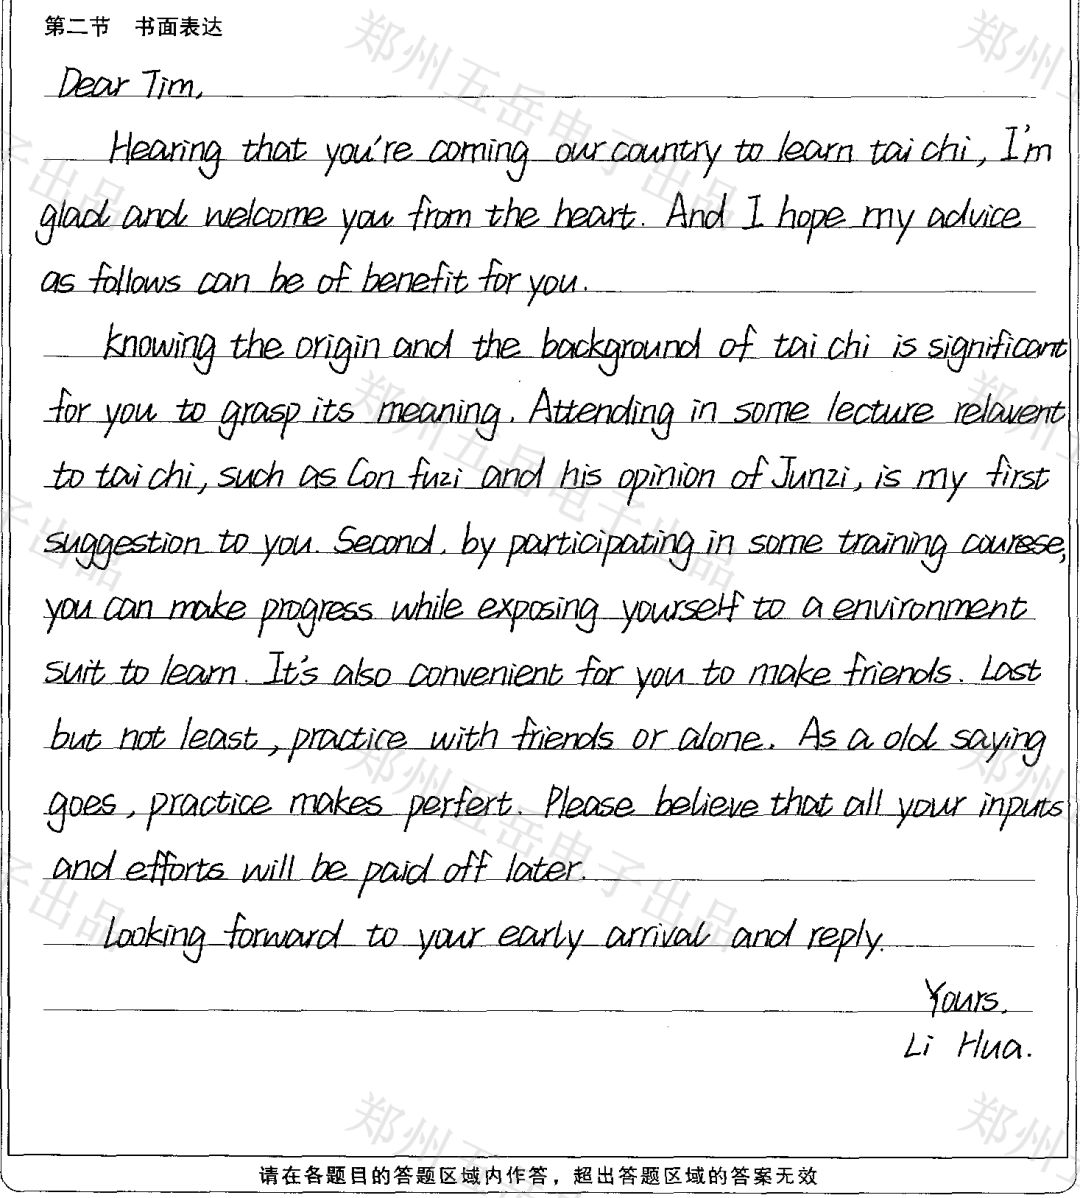 第二节 书面表达
Dear Tim,
Hearing that you're coming our country to learn tai chi, I'm
glad and welcome you from the heart. And I hope my advice
as follows can be of benefit for you.
Knowing the origin and the background of tai chi is significant
for you to grasp its meaning. Attending in some lecture relavent
to tai chi, such as Con fuzi and his opinion of Junzi, is my first
suggestion to you. Second, by participating in some training courese,
you can make progress while exposing yourself to a environment
suit to learn. It's also convenient for you to make friends. Last
but not least, practice with friends or alone. As a old saying
goes, practice makes perfert. Please believe that all your inputs
and efforts will be paid off later.
Looking forward to your early arrival and reply.
Yours,
Li Hua.
请在各题目的答题区域内作答，超出答题区域的答案无效
郑州五岳电子出品